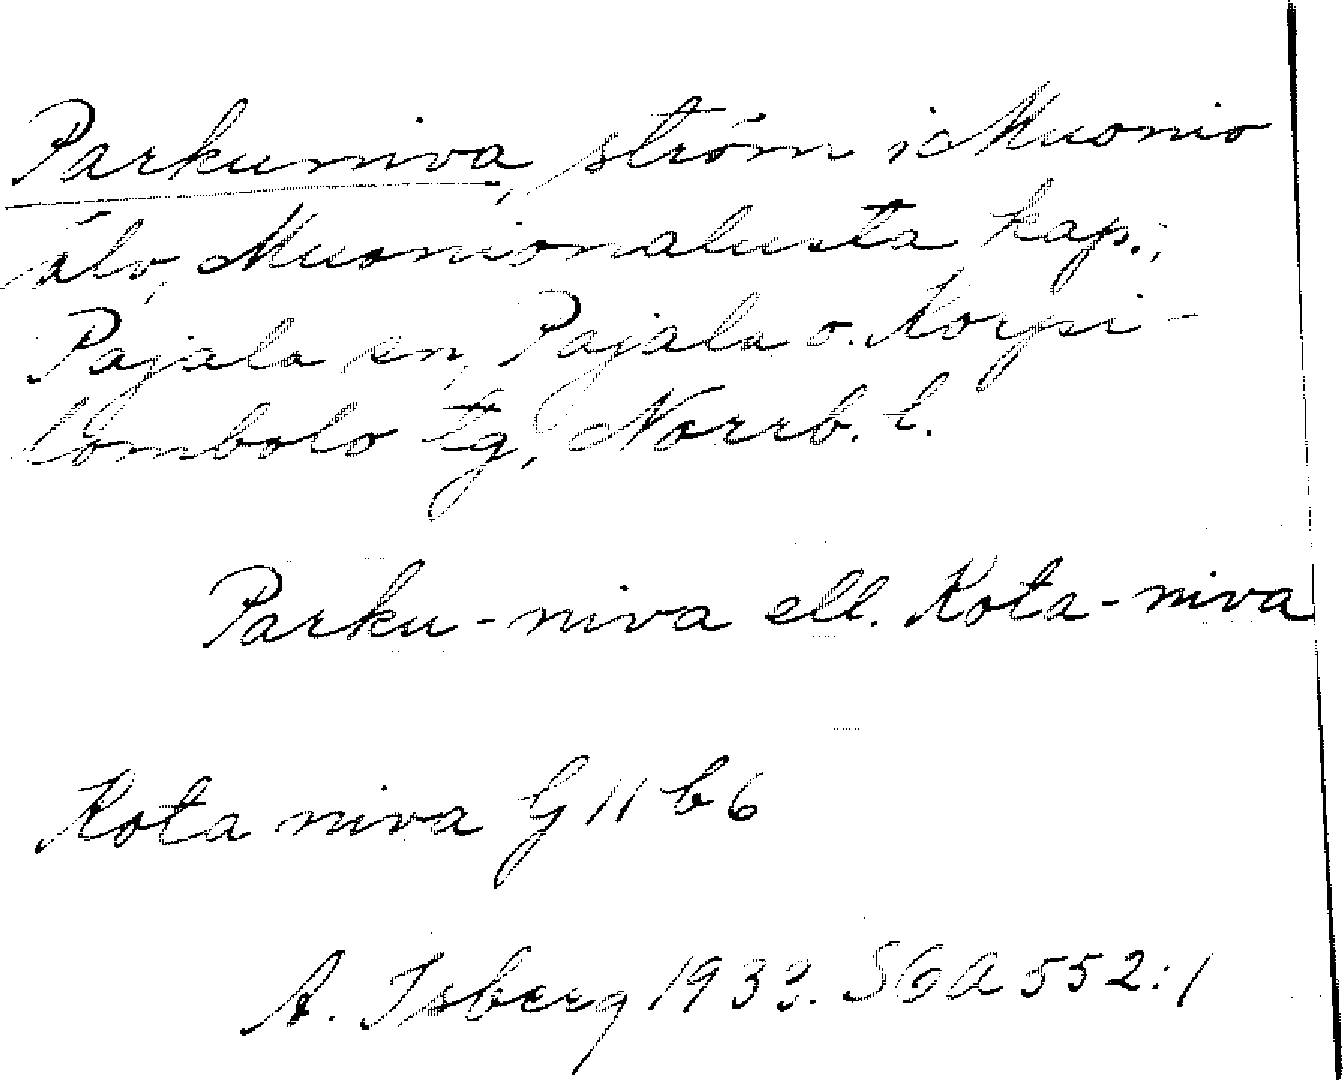 Parkuniva, ström i Muonio
älv, Muonionalusta kap.,
Pajala sn, Pajala o. Korpi-
lombolo tg, Norrb. l.
Parku-niva ell. Kota-niva
Kota niva G 11 b 6
A. Isberg 1933. SGA 552:1